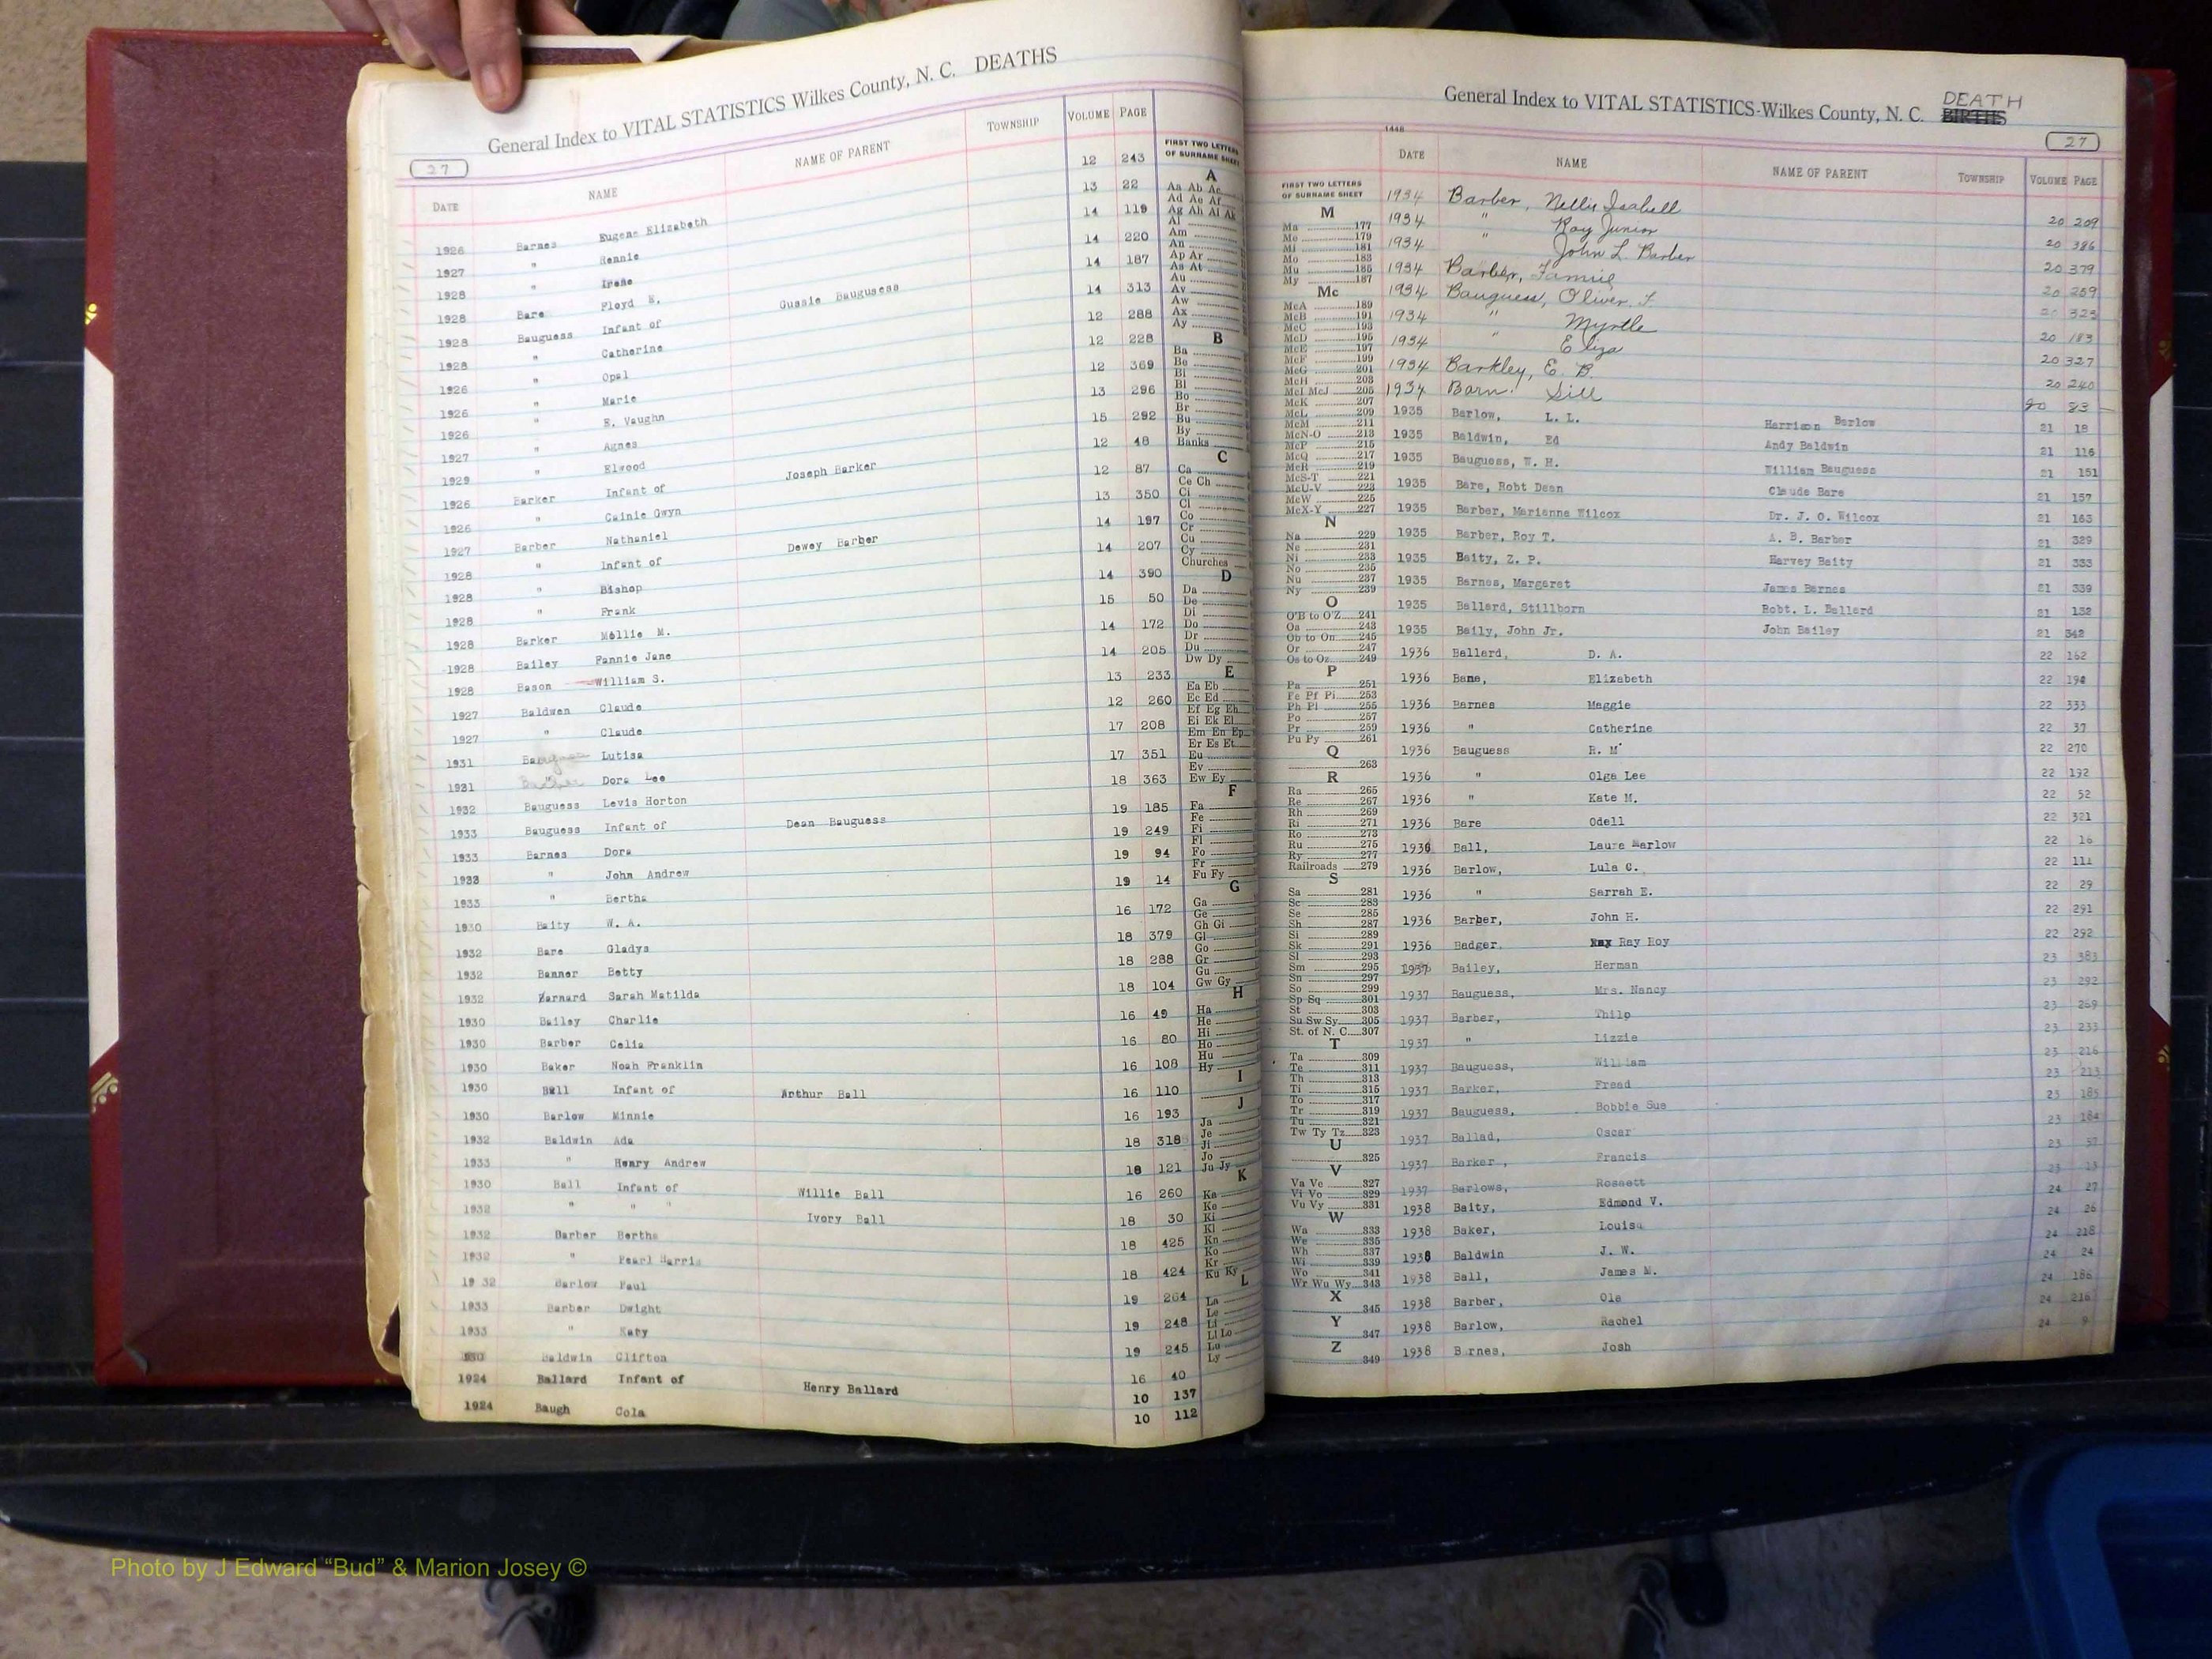 General Index to VITAL STATISTICS Wilkes County, N. C. DEATHS
27
DATE NAME NAME OF PARENT TOWNSHIP VOLUME PAGE
1926 Barnes Eugene Elizabeth 12 243
1927 " Hennie 13 22
1928 " Irene 14 119
1928 Bare Floyd E. 14 220
1928 Bauguess Infant of Gussie Bauguess 14 187
1928 " Catherine 14 313
1926 " Opal 12 288
1926 " Marie 12 228
1926 " E. Vaughn 12 369
1927 " Agnes 13 296
1929 " Elwood 15 292
1926 Barker Infant of Joseph Barker 12 48
1926 " Cainie Gwyn 12 87
1927 Barber Nathaniel 13 350
1928 " Infant of Dewey Barber 14 197
1928 " Bishop 14 207
1928 " Frank 14 390
1928 Barker Mollie M. 15 50
1928 Bailey Fannie Jane 14 172
1928 Bason William S. 14 205
1927 Baldwen Claude 13 233
1927 " Claude 12 260
1931 Lutisa 17 208
1931 Dora Lee 17 351
1932 Bauguess Levis Horton 18 363
1933 Bauguess Infant of Dean Bauguess 19 185
1933 Barnes Dora 19 249
1933 " John Andrew 19 94
1933 " Bertha 19 14
1930 Baity W. A. 16 172
1932 Bare Gladys 18 379
1932 Banner Betty 18 288
1932 Barnard Sarah Matilda 18 104
1930 Bailey Charlie 16 49
1930 Barber Celia 16 80
1930 Baker Noah Franklin 16 108
1930 Ball Infant of Arthur Ball 16 110
1930 Barlow Minnie 16 193
1932 Baldwin Ada 18 318
1933 " Henry Andrew 18 121
1930 Ball Infant of Willie Ball 16 260
1932 " " " Ivory Ball 18 30
1932 Barber Bertha 18 425
1932 " Pearl Harris 18 424
1932 Barlow Paul 19 264
1933 Barber Dwight 19 248
1933 " Katy 19 245
1930 Baldwin Clifton 16 40
1924 Ballard Infant of Henry Ballard 10 137
1924 Baugh Cola 10 112
FIRST TWO LETTERS
OF SURNAME SHEET
A
Aa Ab Ac
Ad Ae Af
Ag Ah Ai Ak
Al
Am
An
Ap Ar
As At
Au
Av
Aw
Ax
Ay
B
Ba
Be
Bi
Bl
Bo
Br
Bu
By
Banks
C
Ca
Ce Ch
Ci
Cl
Co
Cr
Cu
Cy
Churches
D
Da
De
Di
Do
Dr
Du
Dw Dy
E
Ea Eb
Ec Ed
Ef Eg Eh
Ei Ek El
Em En Ep
Er Es Et
Eu
Ev
Ew Ey
F
Fa
Fe
Fi
Fl
Fo
Fr
Fu Fy
G
Ga
Ge
Gh Gi
Gl
Go
Gr
Gu
Gw Gy
H
Ha
He
Hi
Ho
Hu
Hy
I
J
Ja
Je
Ji
Jo
Ju Jy
K
Ka
Ke
Ki
Kl
Kn
Ko
Kr
Ku Ky
L
La
Le
Li
Ll Lo
Lu
Ly
General Index to VITAL STATISTICS-Wilkes County, N. C. BIRTHS DEATH
27
1448
FIRST TWO LETTERS
OF SURNAME SHEET
M
Ma 177
Me 179
Mi 181
Mo 183
Mu 185
My 187
Mc
McA 189
McB 191
McC 193
McD 195
McE 197
McF 199
McG 201
McH 203
McI McJ 205
McK 207
McL 209
McM 211
McN-O 213
McP 215
McQ 217
McR 219
McS-T 221
McU-V 223
McW 225
McX-Y 227
N
Na 229
Ne 231
Ni 233
No 235
Nu 237
Ny 239
O
O'B to O'Z 241
Oa 243
Ob to On 245
Or 247
Os to Oz 249
P
Pa 251
Pe Pf Pi 253
Ph Pl 255
Po 257
Pr 259
Pu Py 261
Q
263
R
Ra 265
Re 267
Rh 269
Ri 271
Ro 273
Ru 275
Ry 277
Railroads 279
S
Sa 281
Sc 283
Se 285
Sh 287
Si 289
Sk 291
Sl 293
Sm 295
Sn 297
So 299
Sp Sq 301
St 303
Su Sw Sy 305
St. of N. C. 307
T
Ta 309
Te 311
Th 313
Ti 315
To 317
Tr 319
Tu 321
Tw Ty Tz 323
U
325
V
Va Ve 327
Vi Vo 329
Vu Vy 331
W
Wa 333
We 335
Wh 337
Wi 339
Wo 341
Wr Wu Wy 343
X
345
Y
347
Z
349
DATE NAME NAME OF PARENT TOWNSHIP VOLUME PAGE
1934 Barber, Nellie Isabell 20 209
1934 " Roy Junior 20 386
1934 " John L. Barber 20 379
1934 Barber, Fannie 20 259
1934 Bauguess, Oliver F. 20 323
1934 " Myrtle 20 183
1934 " Eliza 20 327
1934 Barkley, E. B. 20 240
1934 Barn Sill 20 83
1935 Barlow, L. L. Harrison Barlow 21 18
1935 Baldwin, Ed Andy Baldwin 21 116
1935 Bauguess, W. H. William Bauguess 21 151
1935 Bare, Robt Dean Claude Bare 21 157
1935 Barber, Marianne Wilcox Dr. J. O. Wilcox 21 163
1935 Barber, Roy T. A. B. Barber 21 329
1935 Baity, Z. P. Harvey Baity 21 333
1935 Barnes, Margaret James Barnes 21 339
1935 Ballard, Stillborn Robt. L. Ballard 21 132
1935 Baily, John Jr. John Bailey 21 342
1936 Ballard, D. A. 22 162
1936 Bane, Elizabeth 22 194
1936 Barnes Maggie 22 333
1936 " Catherine 22 37
1936 Bauguess R. M 22 270
1936 " Olga Lee 22 192
1936 " Kate M. 22 52
1936 Bare Odell 22 321
1936 Ball, Laura Marlow 22 16
1936 Barlow, Lula C. 22 111
1936 " Sarrah E. 22 29
1936 Barber, John H. 22 291
1936 Badger Ray Roy 22 292
1937 Bailey, Herman 23 383
1937 Bauguess, Mrs. Nancy 23 292
1937 Barber, Thilo 23 269
1937 " Lizzie 23 233
1937 Bauguess, William 23 216
1937 Barker, Fread 23 213
1937 Bauguess, Bobbie Sue 23 185
1937 Ballad, Oscar 23 184
1937 Barker, Francis 23 57
1937 Barlows, Rossett 23 13
1938 Baity, Edmond V. 24 27
1938 Baker, Louisa 24 26
1938 Baldwin J. W. 24 218
1938 Ball, James M. 24 24
1938 Barber, Ola 24 186
1938 Barlow, Rachel 24 216
1938 B rnes, Josh 24 9
Photo by J Edward “Bud” & Marion Josey ©